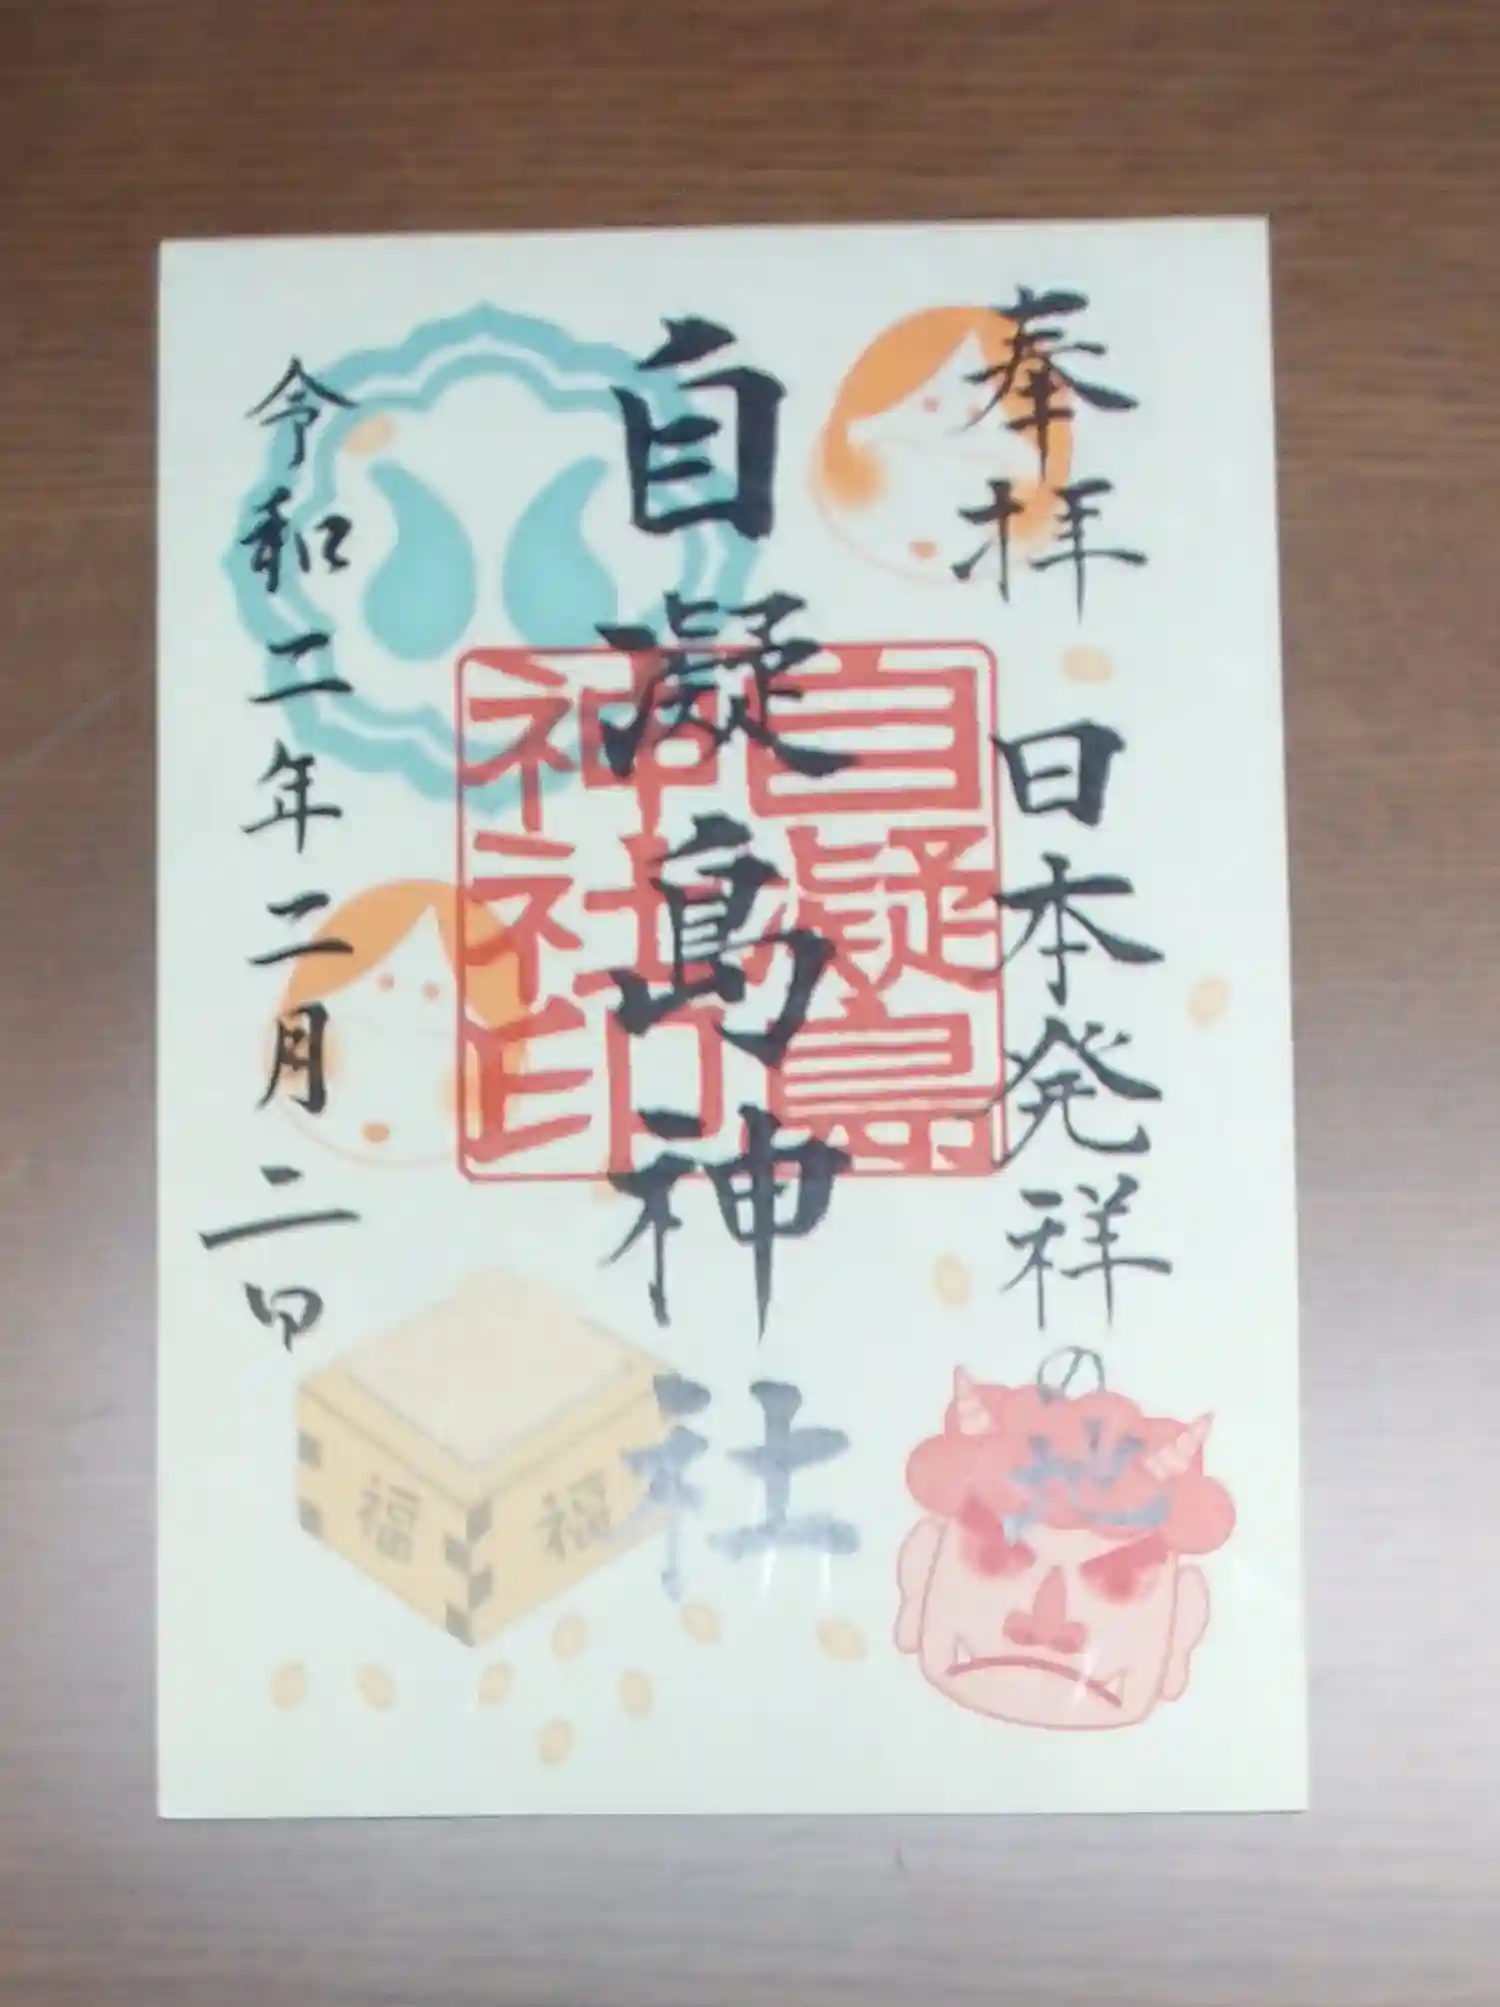 奉拝
日本発祥の地
自凝島神社
自凝島
神社印
令和二年二月二日
福
福